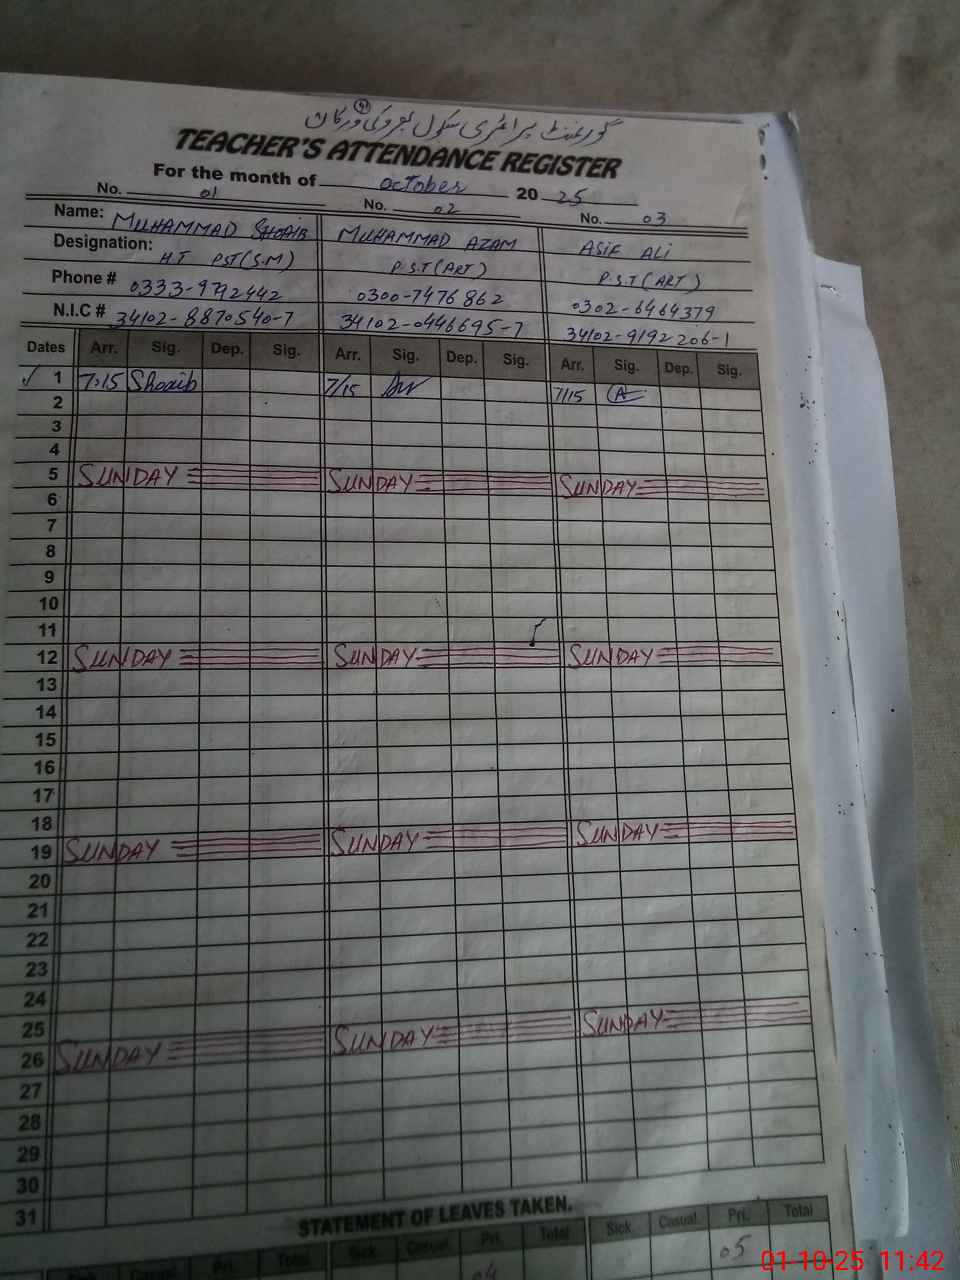 گورنمنٹ پرائمری سکول
TEACHER'S ATTENDANCE REGISTER
For the month of October 20 25
No. 01 No. 02 No. 03
Name: MUHAMMAD SHOAIB MUHAMMAD AZAM ASIF ALI
Designation: H.T PST(S.M) P.S.T(ART) P.S.T(ART)
Phone # 0333-9792442 0300-7476862 0302-6464379
N.I.C # 34102-8870540-7 34102-0446695-7 34102-9192206-1
Dates Arr. Sig. Dep. Sig. Arr. Sig. Dep. Sig. Arr. Sig. Dep. Sig.
1 7:15 Shoaib 7/15 7/15 A
2
3
4
5 SUNDAY SUNDAY SUNDAY
6
7
8
9
10
11
12 SUNDAY SUNDAY SUNDAY
13
14
15
16
17
18
19 SUNDAY SUNDAY SUNDAY
20
21
22
23
24
25
26 SUNDAY SUNDAY SUNDAY
27
28
29
30
31
STATEMENT OF LEAVES TAKEN.
Pri. Total Sick. Casual. Pri. Total Sick. Casual. Pri. Total
04 05
01-10-25 11:42